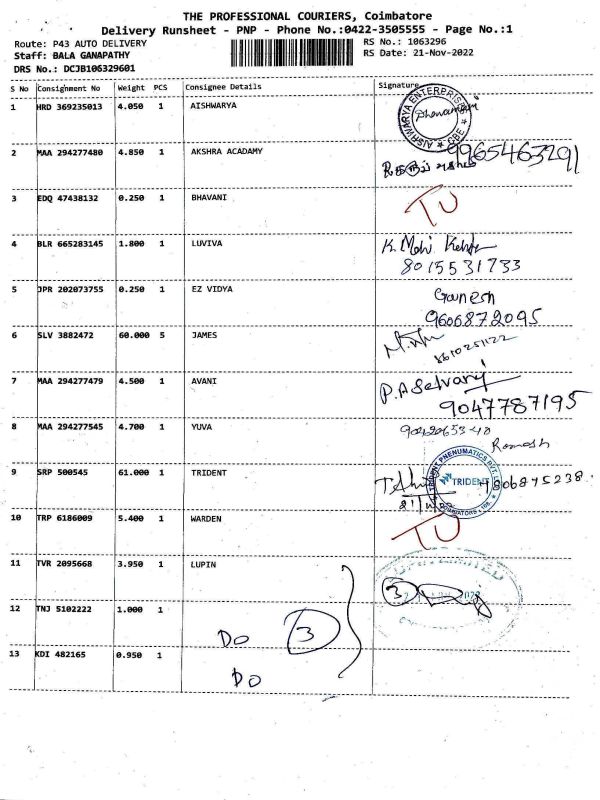 THE PROFESSIONAL COURIERS, Coimbatore
Delivery Runsheet - PNP - Phone No.:0422-3505555 - Page No.:1
Route: P43 AUTO DELIVERY
RS No.: 1063296
Staff: BALA GANAPATHY
RS Date: 21-Nov-2022
DRS No.: DCJB106329601
S No Consignment No Weight PCS Consignee Details Signature
1 HRD 369235013 4.050 1 AISHWARYA
AISHWARYA ENTERPRISES CBE
2 MAA 294277480 4.850 1 AKSHRA ACADAMY 9965463291
3 EDQ 47438132 0.250 1 BHAVANI TU
4 BLR 665283145 1.800 1 LUVIVA K. Mohi
8015531733
5 JPR 202073755 0.250 1 EZ VIDYA Ganesh
9606872095
6 SLV 3882472 60.000 5 JAMES
8610251122
7 MAA 294277479 4.500 1 AVANI P.A Selvaraj
9047787195
8 MAA 294277545 4.700 1 YUVA
Ramesh
9 SRP 500545 61.000 1 TRIDENT
TRIDENT PNEUMATICS PVT.
TRIDENT
10 TRP 6186009 5.400 1 WARDEN TU
11 TVR 2095668 3.950 1 LUPIN
3
12 TNJ 5102222 1.000 1
DO 3
13 KDI 482165 0.950 1
DO